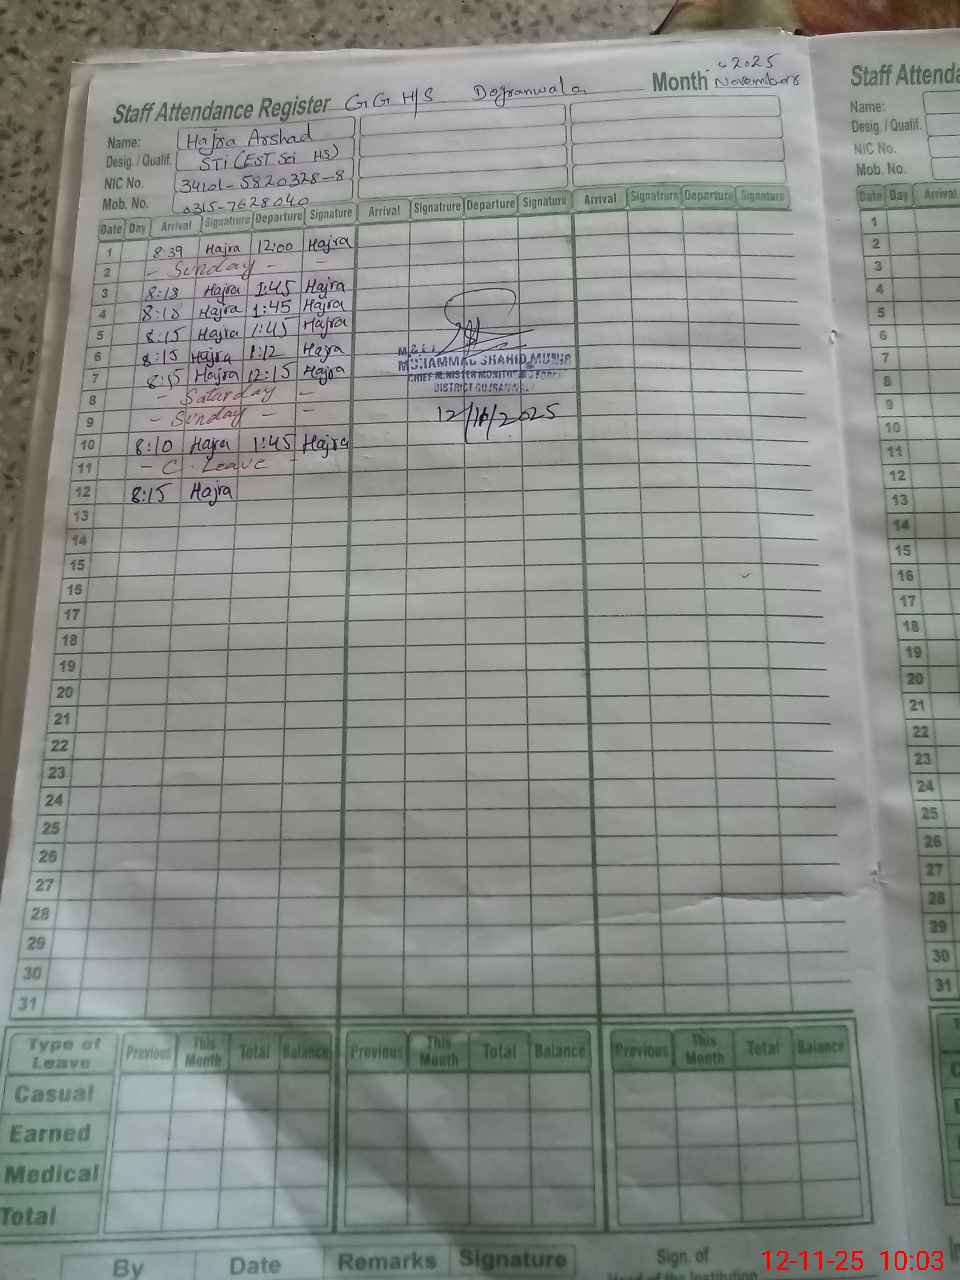 2025
Staff Attendance Register GGH/S Dogranwala Month November
Name: Hajra Arshad
Desig. / Qualif. STi (EST Sci HS)
NIC No. 34101-5820328-8
Mob. No. 0315-7628040
Date Day Arrival Signatrure Departure Signature Arrival Signatrure Departure Signature Arrival Signatrure Departure Signature
1 8:39 Hajra 12:00 Hajra
2 - Sunday - -
3 8:18 Hajra 1:45 Hajra
4 8:18 Hajra 1:45 Hajra
5 8:15 Hajra 1:45 Hajra
6 8:15 Hajra 1:12 Hajra
7 8:15 Hajra 12:15 Hajra
8 - Saturday -
9 - Sunday - -
10 8:10 Hajra 1:45 Hajra
11 - C. Leave -
12 8:15 Hajra
13
14
15
16
17
18
19
20
21
22
23
24
25
26
27
28
29
30
31
MUHAMMAD SHAHID
CHIEF MINISTER MONITORING FORCE
DISTRICT
12/11/2025
Type of Leave Previous This Month Total Balance Previous This Month Total Balance Previous This Month Total Balance
Casual
Earned
Medical
Total
By Date Remarks Signature Sign. of
Head of the Institution
Staff Attenda
Name:
Desig. / Qualif.
NIC No.
Mob. No.
Date Day Arrival
1
2
3
4
5
6
7
8
9
10
11
12
13
14
15
16
17
18
19
20
21
22
23
24
25
26
27
28
29
30
31
12-11-25 10:03